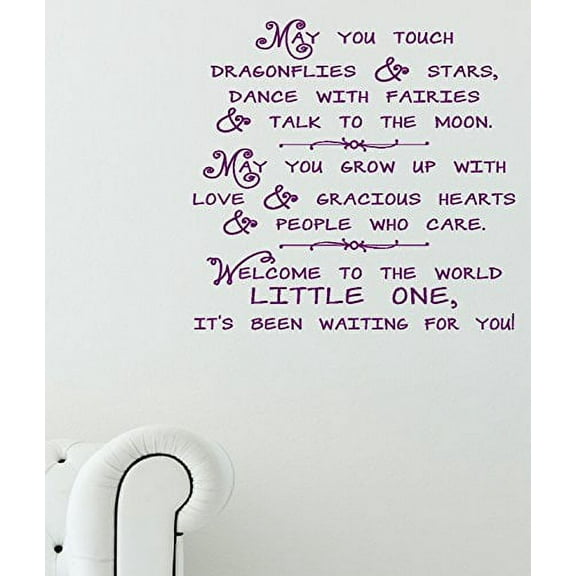 MAY YOU TOUCH
DRAGONFLIES & STARS,
DANCE WITH FAIRIES
& TALK TO THE MOON.
MAY YOU GROW UP WITH
LOVE & GRACIOUS HEARTS
& PEOPLE WHO CARE.
WELCOME TO THE WORLD
LITTLE ONE,
IT'S BEEN WAITING FOR YOU!